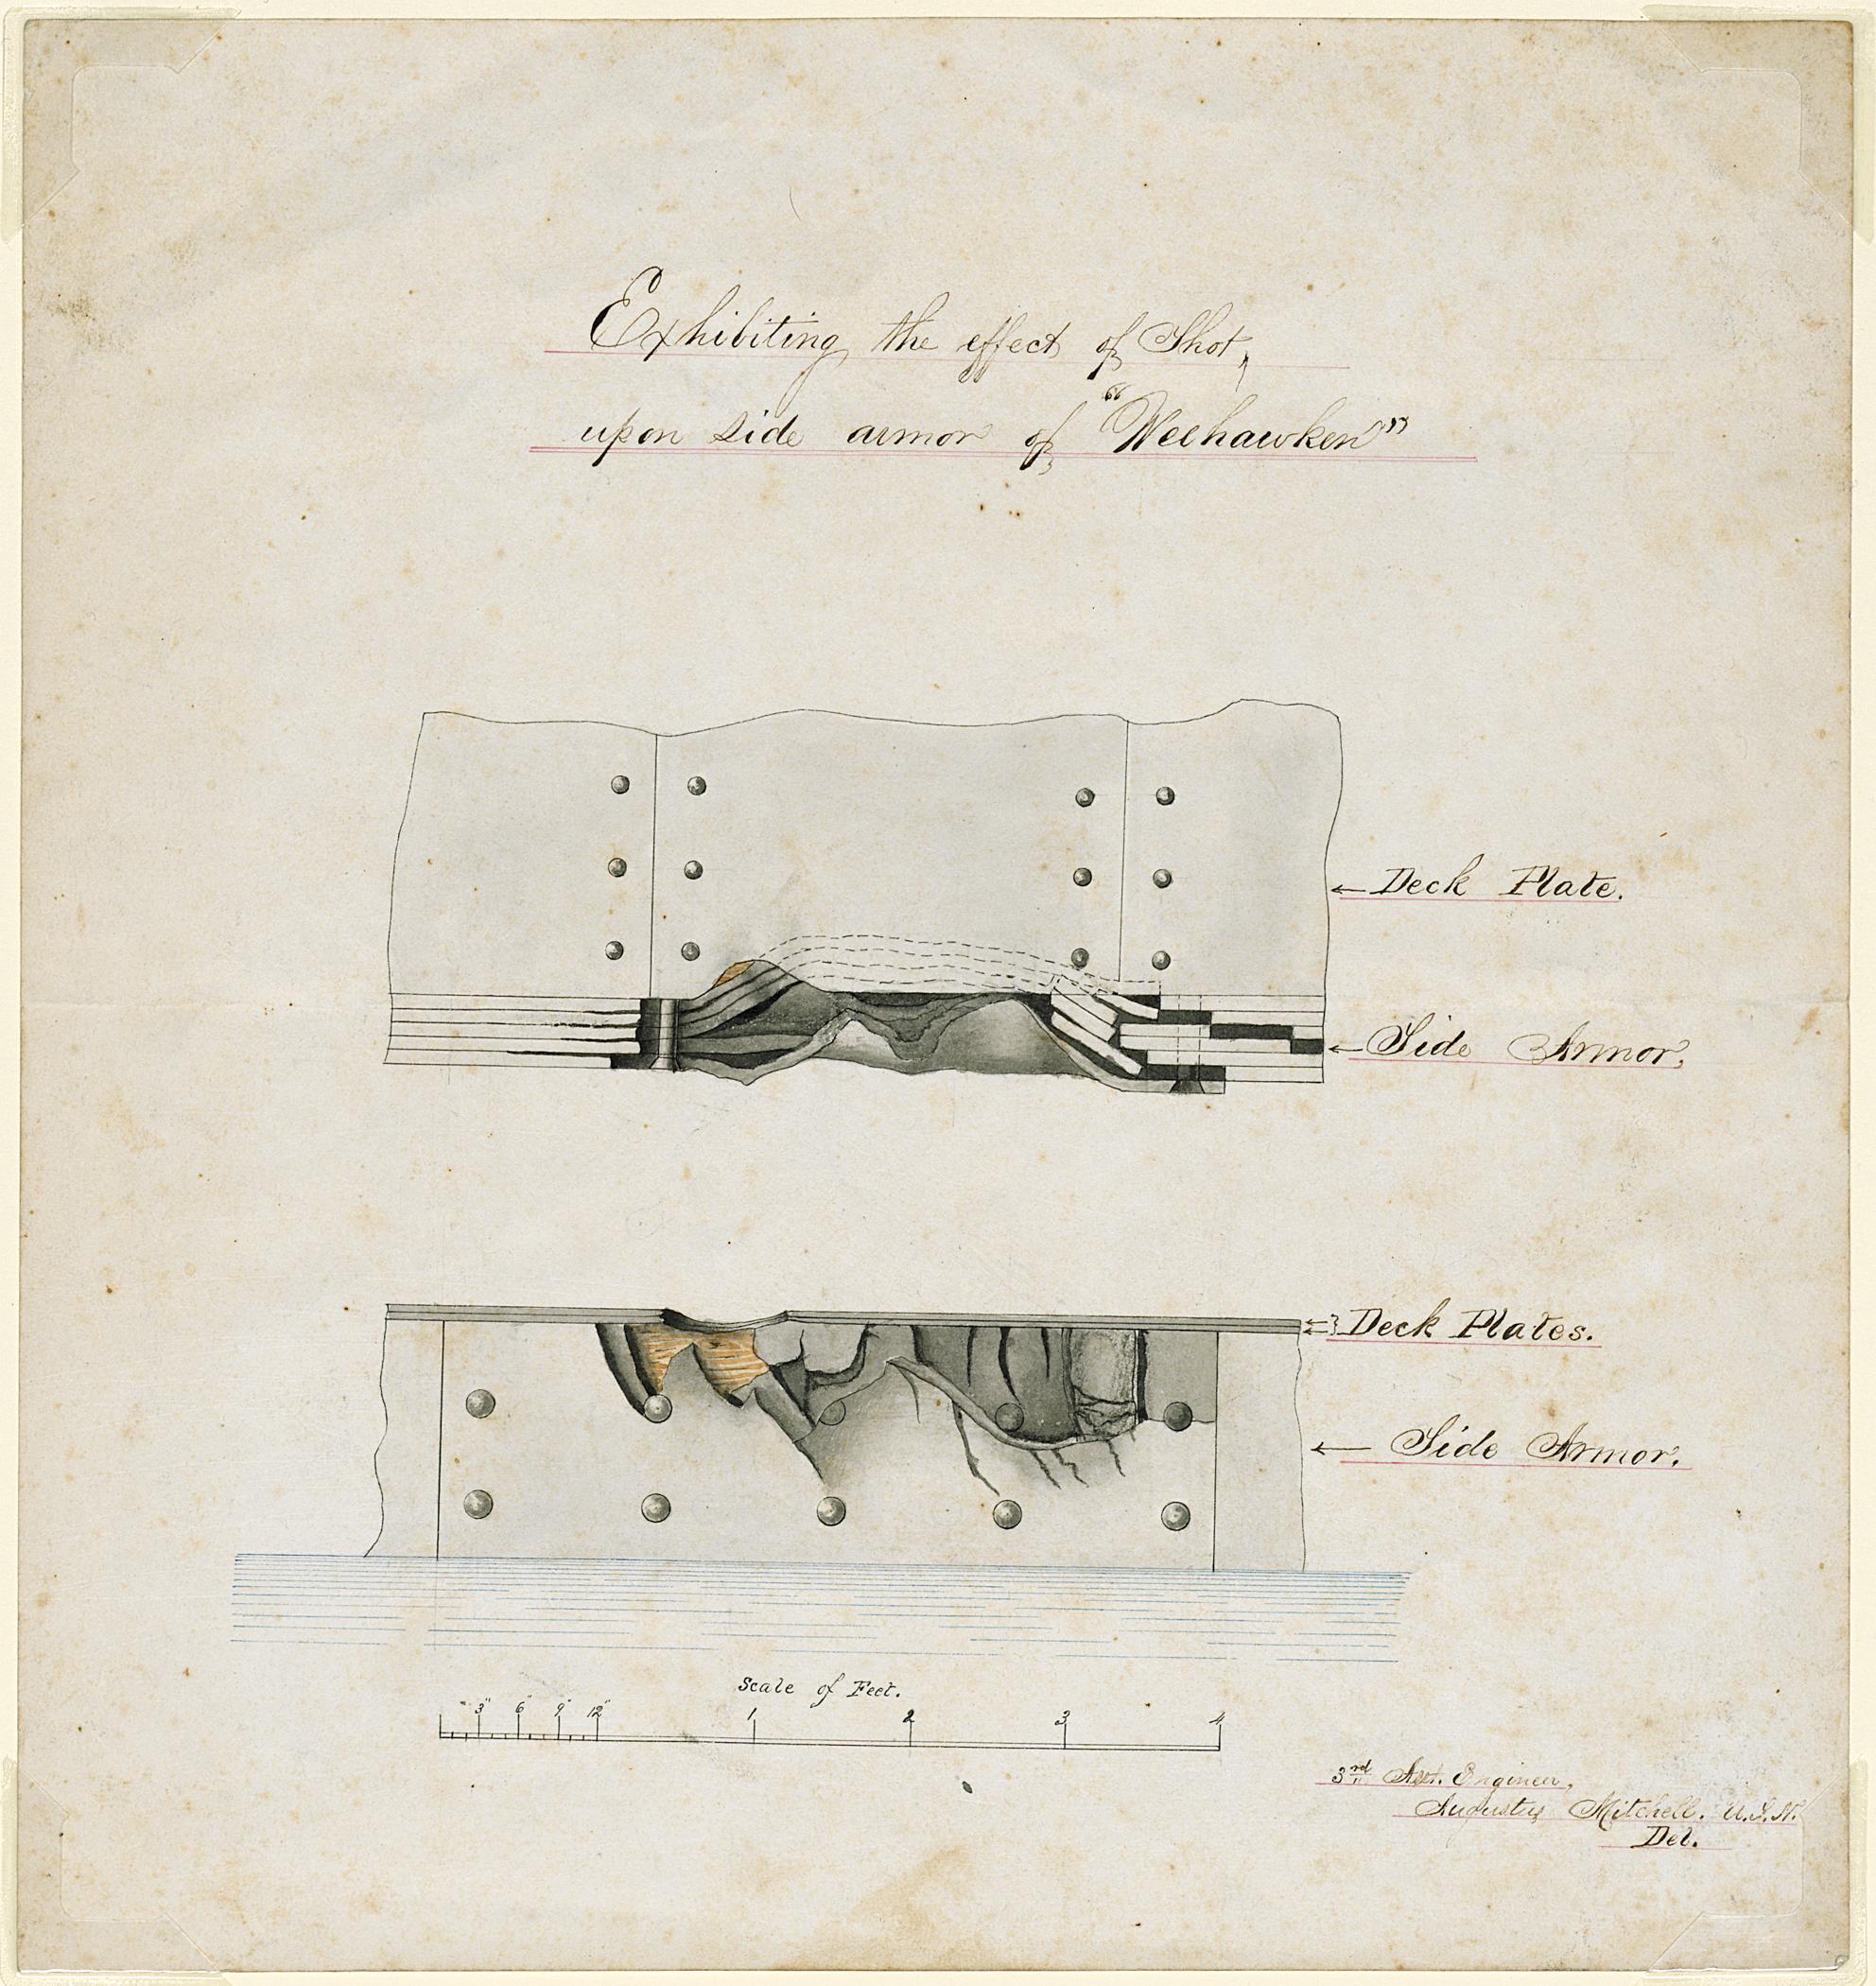 Exhibiting the effect of Shot,
upon side armor of "Weehawken"
Deck Plate.
Side Armor,
Deck Plates.
Side Armor.
Scale of Feet.
3" 6" 9" 12" 1 2 3 4
3rd Asst. Engineer,
Augustus Mitchell. U.S.N.
Del.